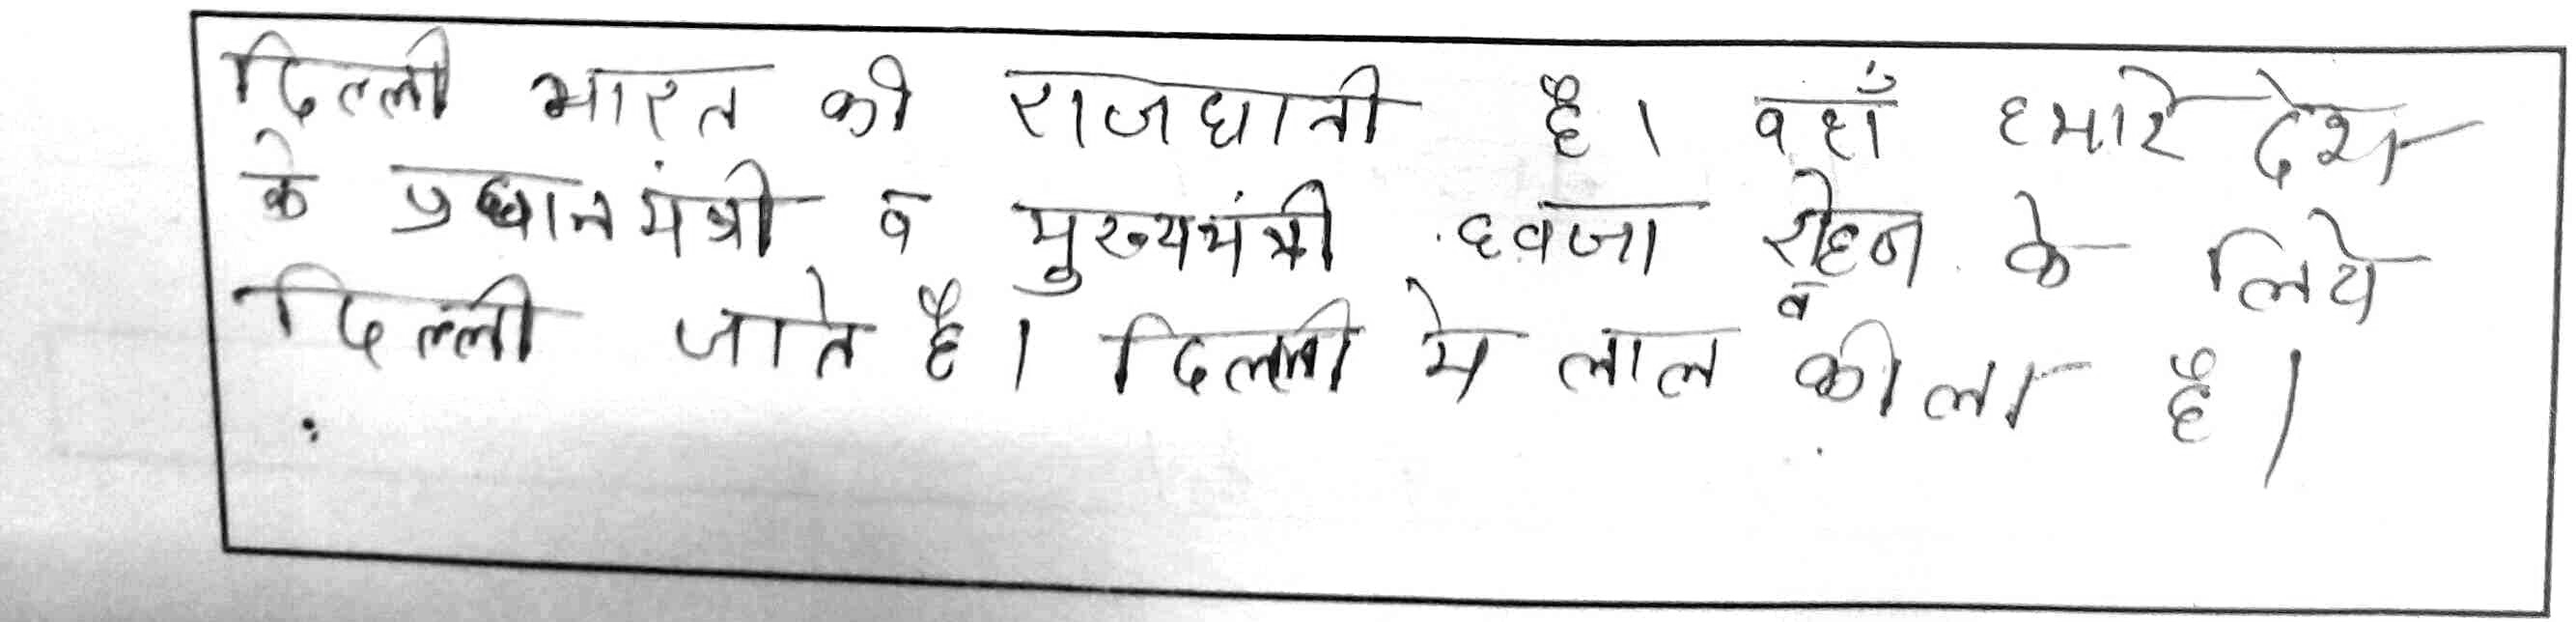 दिल्ली भारत की राजधानी है। वहाँ हमारे देश
के प्रधानमंत्री व मुख्यमंत्री ध्वजा रोहन के लिये
दिल्ली जाते है। दिल्ली मे लाल कीला है।